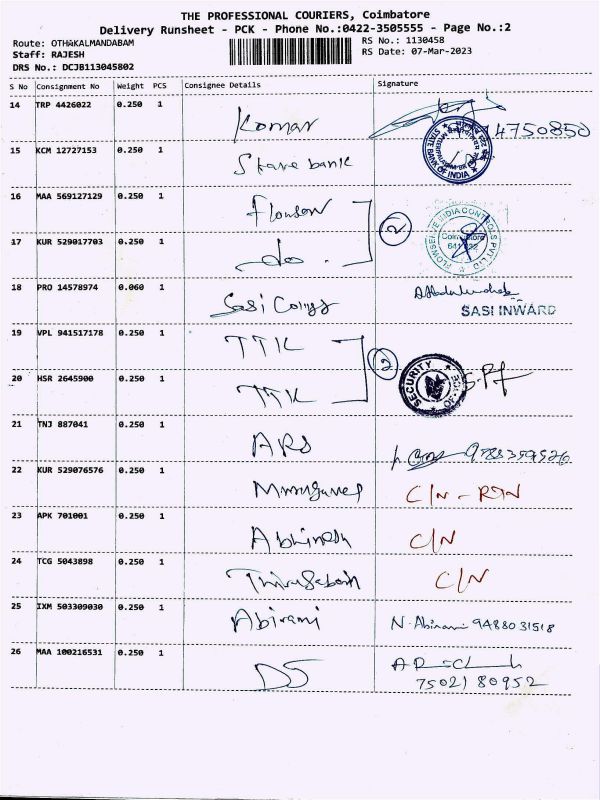 THE PROFESSIONAL COURIERS, Coimbatore
Delivery Runsheet - PCK - Phone No.:0422-3505555 - Page No.:2
Route: OTHAKALMANDABAM
RS No.: 1130458
Staff: RAJESH
RS Date: 07-Mar-2023
DRS No.: DCJB113045802
S No Consignment No Weight PCS Consignee Details Signature
14 TRP 4426022 0.250 1 Komar 4750850
STATE BANK OF INDIA
15 KCM 12727153 0.250 1 State bank
16 MAA 569127129 0.250 1 2
FLOWSERVE INDIA CONTROLS PVT LTD
Coimbatore
17 KUR 529017703 0.250 1 do.
18 PRO 14578974 0.060 1 Sasi
SASI INWARD
19 VPL 941517178 0.250 1 TTK 2
SECURITY
20 HSR 2645900 0.250 1 TTK
21 TNJ 887041 0.250 1 ARS
22 KUR 529076576 0.250 1 C/N - RTN
23 APK 701001 0.250 1 Abhinesh C/N
24 TCG 5043898 0.250 1 C/N
25 IXM 503309030 0.250 1 Abirami N. Abirami 9488031518
26 MAA 100216531 0.250 1 DS
7502180952